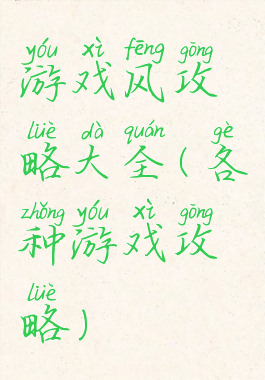 yóu xì fēng gōng
游戏风攻
lüè dà quán gè
略大全(各
zhǒng yóu xì gōng
种游戏攻
lüè
略)